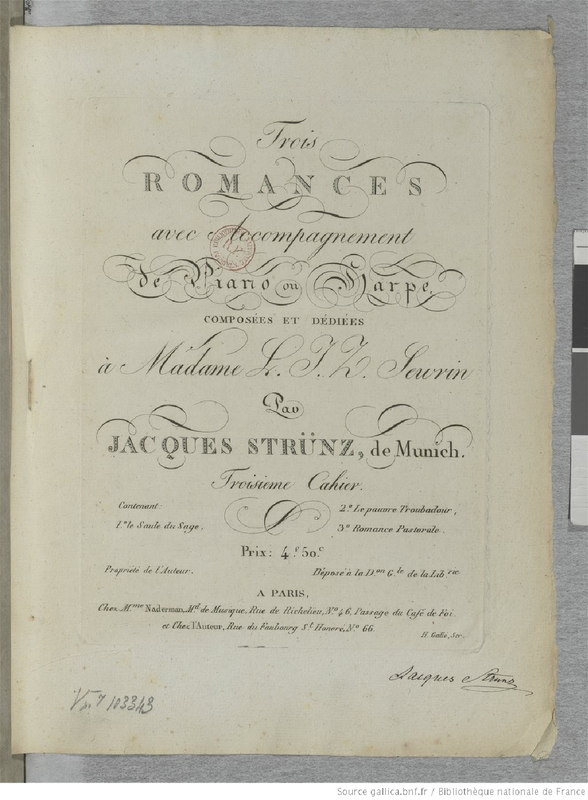 Trois
ROMANCES
avec Accompagnement
de Piano ou Harpe,
COMPOSÉES ET DÉDIÉES
à Madame L. J. Z. Sewrin
Par
JACQUES STRÜNZ, de Munich.
Troisieme Cahier.
Contenant:
1.º le Saule du Sage,
2.º Le pauvre Troubadour,
3.º Romance Pastorale.
Prix: 4.f 50.c
Propriété de l'Auteur.
Déposé à la D.on G.le de la Lib.rie
A PARIS,
Chez M.me Naderman, M.de de Musique, Rue de Richelieu, N.º 46, Passage du Café de Foi
et Chez l'Auteur, Rue du Faubourg S.t Honoré, N.º 66.
Jacques Strunz
Vm.7 103343
Source gallica.bnf.fr / Bibliothèque nationale de France